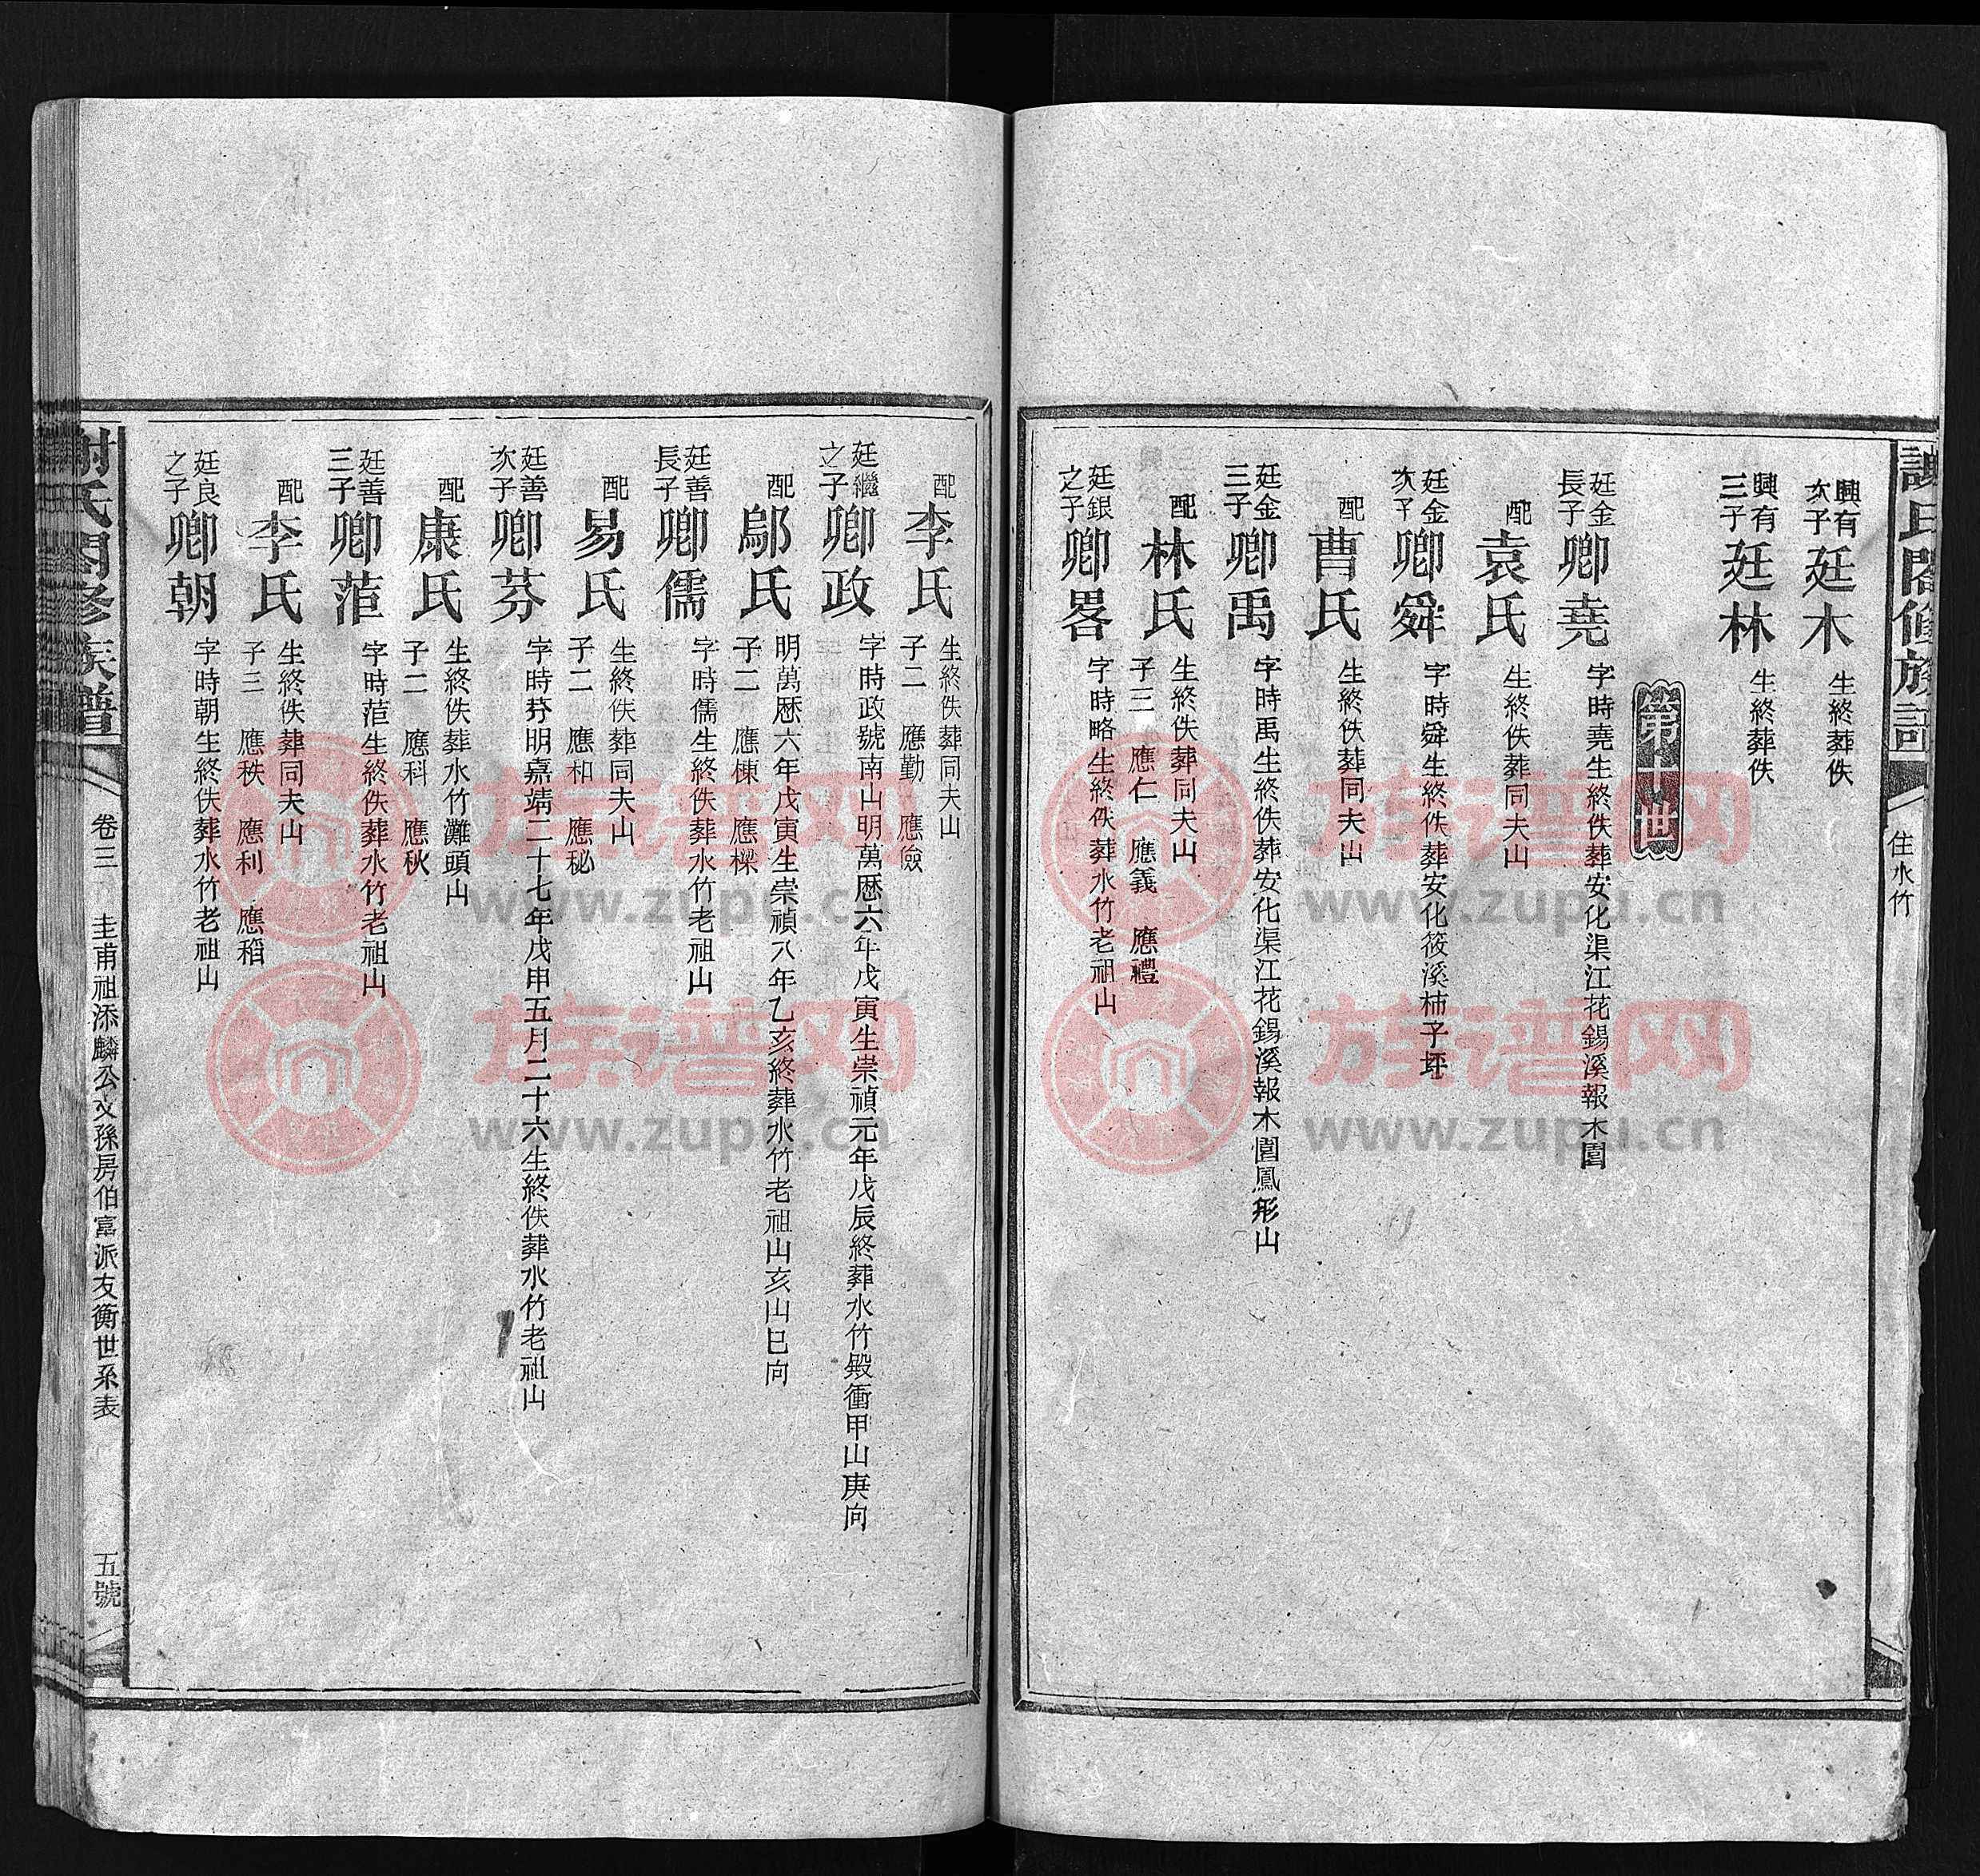 謝氏閤修族譜
住水竹
興有次子 廷木 生終葬佚
興有三子 廷林 生終葬佚
第十世
廷金長子 卿堯 字時堯生終佚葬安化渠江花錫溪報木園
配 袁氏 生終佚葬同夫山
廷金次子 卿舜 字時舜生終佚葬安化筱溪柿子坪
配 曹氏 生終佚葬同夫山
廷金三子 卿禹 字時禹生終佚葬安化渠江花錫溪報木園鳳形山
配 林氏 生終佚葬同夫山
子三 應仁 應義 應禮
廷銀之子 卿畧 字時略生終佚葬水竹老祖山
配 李氏 生終佚葬同夫山
子二 應勤 應儉
廷繼之子 卿政 字時政號南山明萬厯六年戊寅生崇禎元年戊辰終葬水竹殿衝甲山庚向
配 鄔氏 明萬厯六年戊寅生崇禎八年乙亥終葬水竹老祖山亥山巳向
子二 應棟 應樑
廷善長子 卿儒 字時儒生終佚葬水竹老祖山
配 易氏 生終佚葬同夫山
子二 應和 應秘
廷善次子 卿芬 字時芬明嘉靖二十七年戊申五月二十六生終佚葬水竹老祖山
配 康氏 生終佚葬水竹灘頭山
子二 應科 應秋
廷善三子 卿范 字時范生終佚葬水竹老祖山
配 李氏 生終佚葬同夫山
子三 應秩 應利 應稻
廷良之子 卿朝 字時朝生終佚葬水竹老祖山
謝氏閤修族譜
卷三
圭甫祖添麟公文孫房伯富派友衡世系表
五號
族谱网
www.zupu.cn
族谱网
www.zupu.cn
族谱网
www.zupu.cn
族谱网
www.zupu.cn